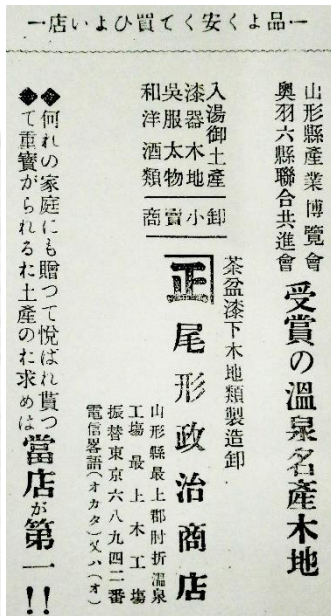 店いよひ買てく安くよ品
山形縣產業博覽會
奧羽六縣聯合共進會
受賞の溫泉名產木地
茶盆漆下木地類製造卸
入湯御土產
漆器木地
吳服太物
和洋酒類
卸小賣商
正
尾形政治商店
山形縣最上郡肘折溫泉
工場最上木工場
振替東京六八九四二番
電信畧語(オカタ)又ハ(オ)
◆何れの家庭にも贈つて悅ばれ貰つ
◆て重寶がられるお土產のお求めは
當店が第一!!